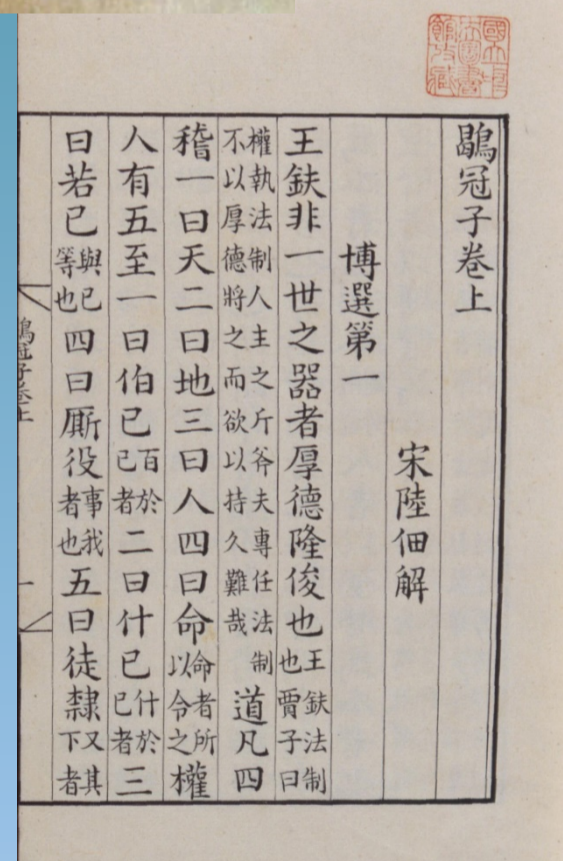 國立中央圖書館收藏
鶡冠子卷上
宋陸佃解
博選第一
王鈇非一世之器者厚德隆俊也王鈇法制也賈子曰
權執法制人主之斤斧夫專任法制不以厚德將之而欲以持久難哉道凡四
稽一曰天二曰地三曰人四曰命命者所以令之權
人有五至一曰伯己百於己者二曰什己什於己者三
曰若己與己等也四曰厮役事我者也五曰徒隸又其下者
鶡冠子卷上
一